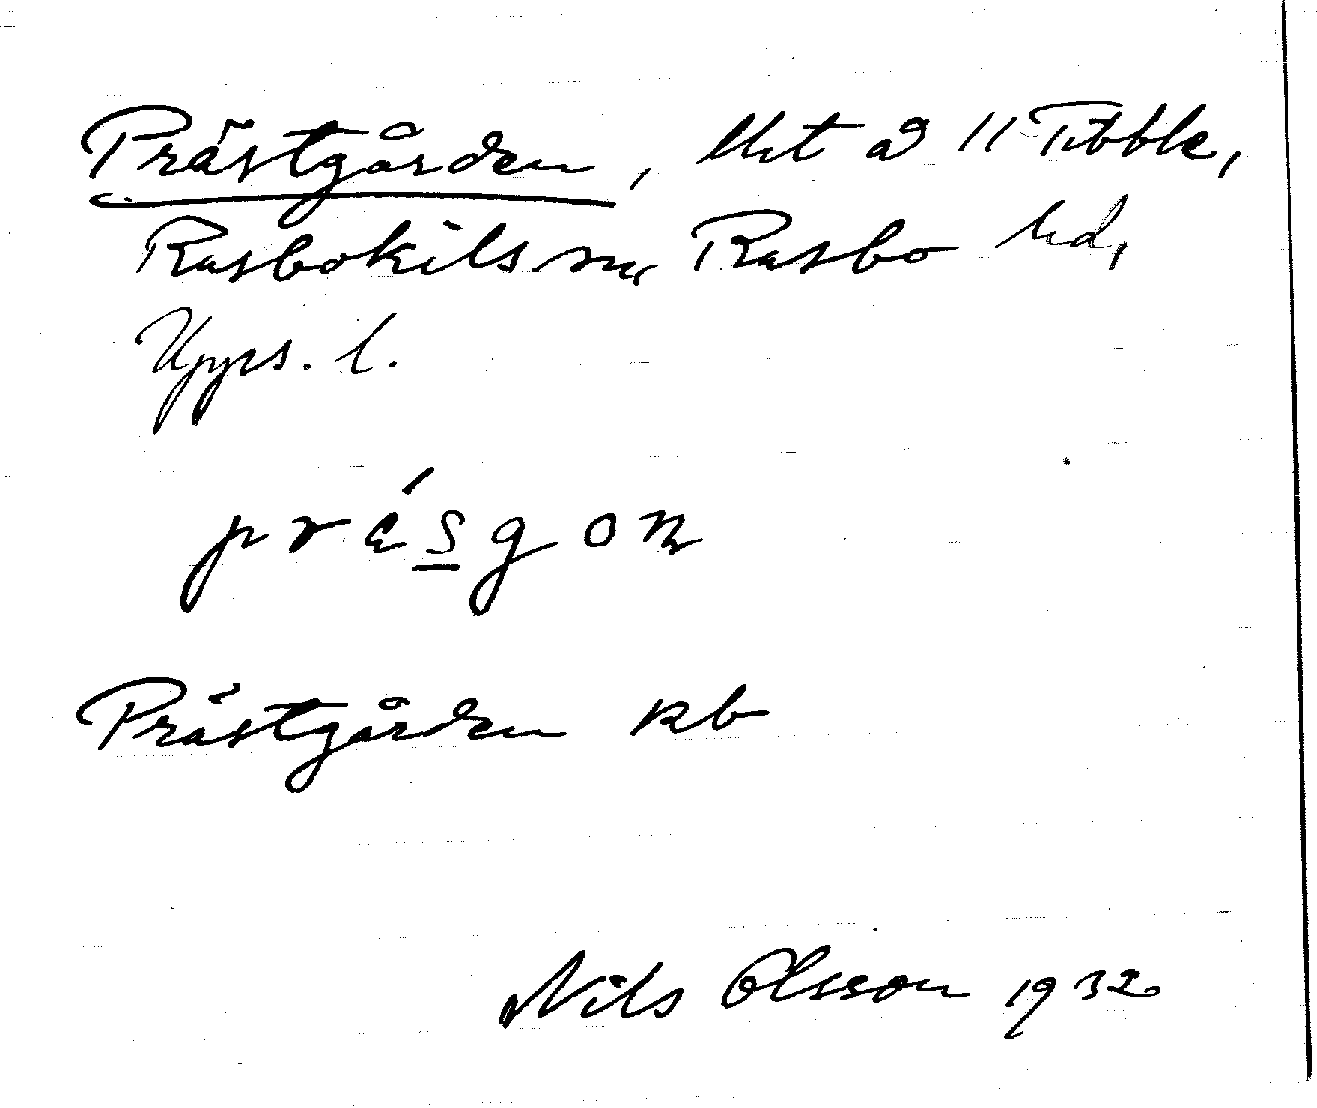 Prästgården, lht å 11 Tibble,
Rasbokils sn, Rasbo hd,
Upps. l.
prɛ́sgon
Prästgården kb
Nils Olsson 1932